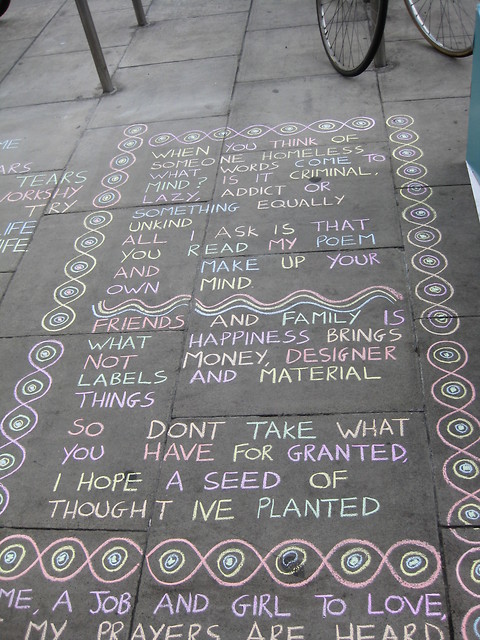 WHEN YOU THINK OF
SOMEONE HOMELESS
WHAT WORDS COME TO
MIND? IS IT CRIMINAL,
LAZY, ADDICT OR
SOMETHING EQUALLY
UNKIND
ALL I ASK IS THAT
YOU READ MY POEM
AND MAKE UP YOUR
OWN MIND.
FRIENDS AND FAMILY IS
WHAT HAPPINESS BRINGS
NOT MONEY, DESIGNER
LABELS AND MATERIAL
THINGS
SO DONT TAKE WHAT
YOU HAVE FOR GRANTED,
I HOPE A SEED OF
THOUGHT IVE PLANTED
ME, A JOB AND GIRL TO LOVE,
MY PRAYERS ARE HEARD
TEARS
WORKSHY
TRY
LIFE